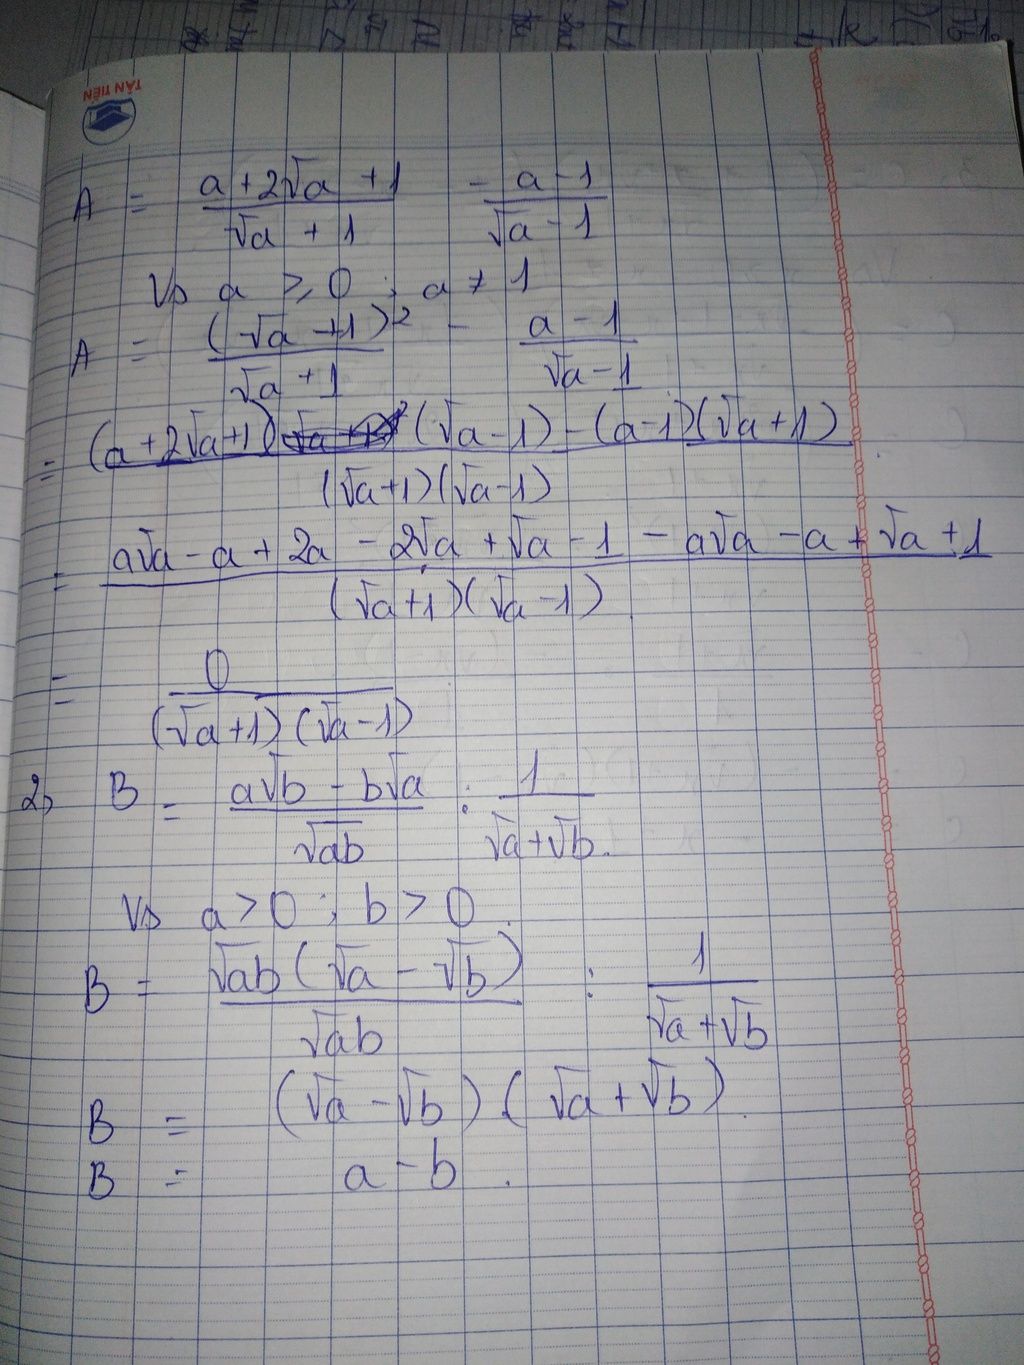 TÂN TIẾN
A = \frac{a + 2√a + 1}{√a + 1} - \frac{a - 1}{√a - 1}
Vs a ≥ 0 ; a ≠ 1
A = \frac{(√a + 1)²}{√a + 1} - \frac{a - 1}{√a - 1}
= \frac{(a + 2√a + 1)(√a - 1) - (a - 1)(√a + 1)}{(√a + 1)(√a - 1)}
= \frac{a√a - a + 2a - 2√a + √a - 1 - a√a - a + √a + 1}{(√a + 1)(√a - 1)}
= \frac{0}{(√a + 1)(√a - 1)}
2, B = \frac{a√b - b√a}{√ab} : \frac{1}{√a + √b}.
Vs a > 0 ; b > 0.
B = \frac{√ab (√a - √b)}{√ab} : \frac{1}{√a + √b}
B = (√a - √b) . (√a + √b).
B = a - b .